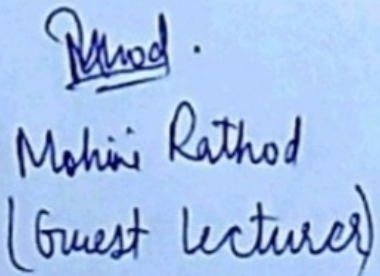 Rathod.
Mohini Rathod
(Guest Lecturer)